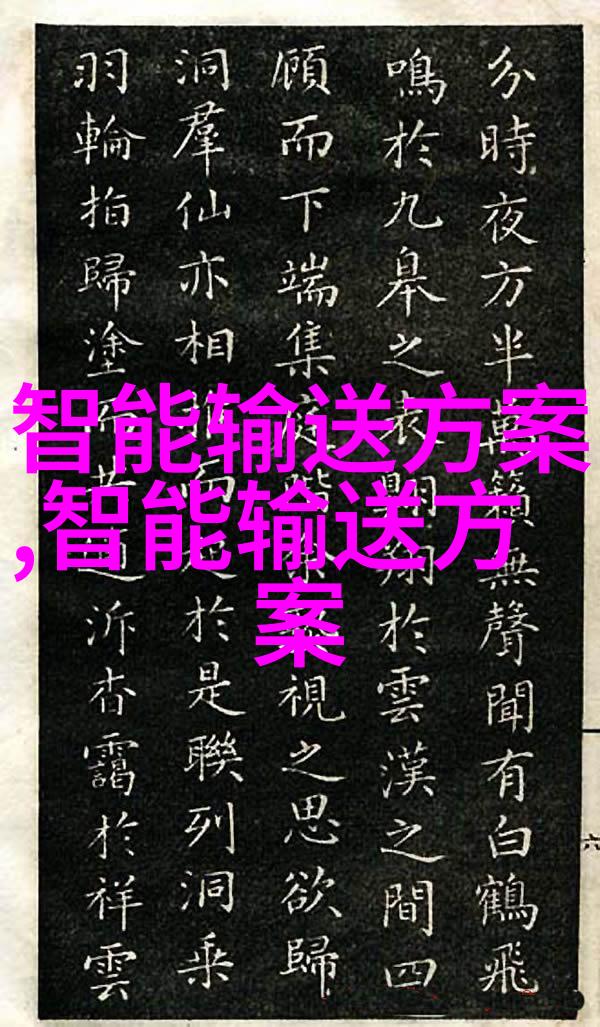 智能输送方案
,智能输送方
案
分時夜方半萬籟無聲聞有白鶴飛
鳴於九皋之表翱翔於雲漢之間四
顧而下端集庭階視之思欲歸
洞羣仙亦相而於是聯列洞乘
羽輪拍歸塗而共泝杳靄於祥雲
六